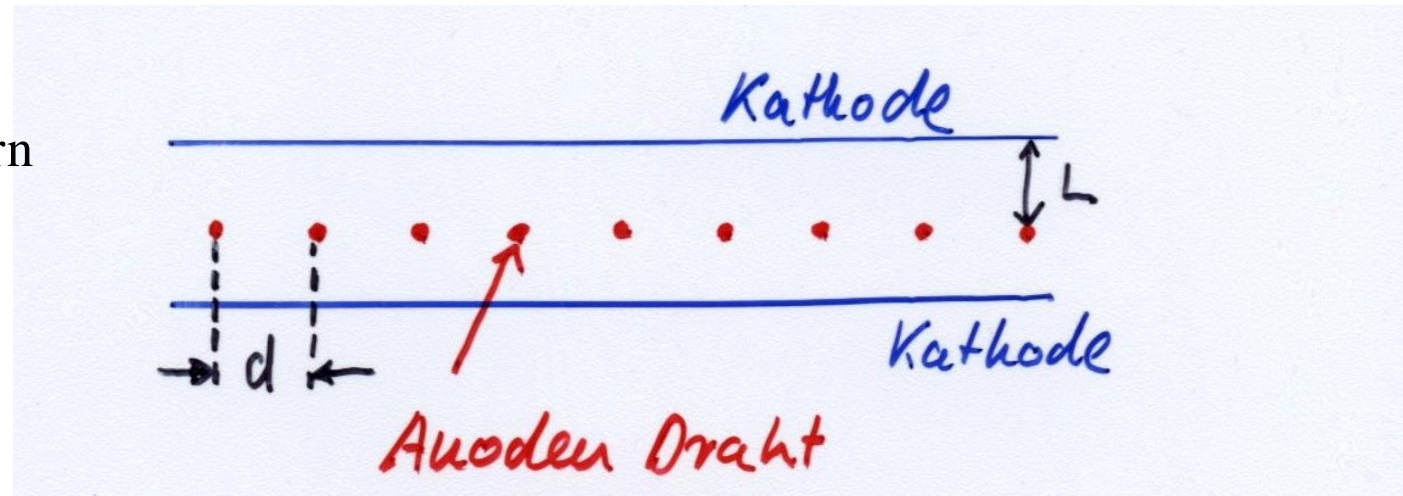 Kathode
rn
L
Kathode
d
Anoden Draht